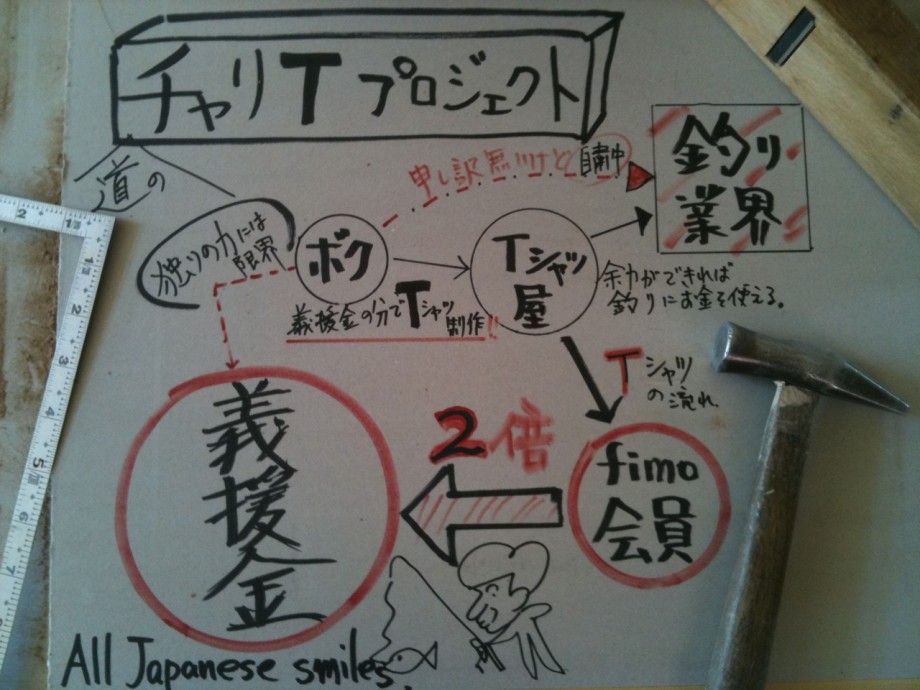 チャリTプロジェクト
道の
申し訳無いけど自粛中
釣り
業界
独りの力には
限界
ボク
Tシャツ
屋
義援金の分でTシャツ制作!!
余力ができれば
釣りにお金を使える。
Tシャツ
の流れ
2倍
fimo
会員
義援金
All Japanese smiles.